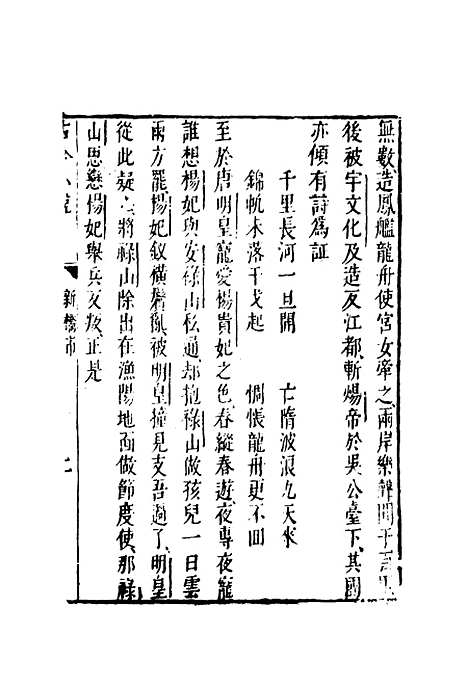 無數造鳳艦龍舟使宮女牽之兩岸樂聲聞于百里
後被宇文化及造反江都斬煬帝於吳公臺下其國
亦傾有詩爲証
千里長河一旦開 亡隋波浪九天來
錦帆未落干戈起 惆悵龍舟更不回
至於唐明皇寵愛楊貴妃之色春縱春遊夜專夜寵
誰想楊妃與安祿山私通却抱祿山做孩兒一日雲
雨方罷楊妃釵橫鬢亂被明皇撞見支吾過了明皇
從此疑心將祿山除出在漁陽地面做節度使那祿
山思戀楊妃舉兵反叛正是
古今小說 新橋市 七